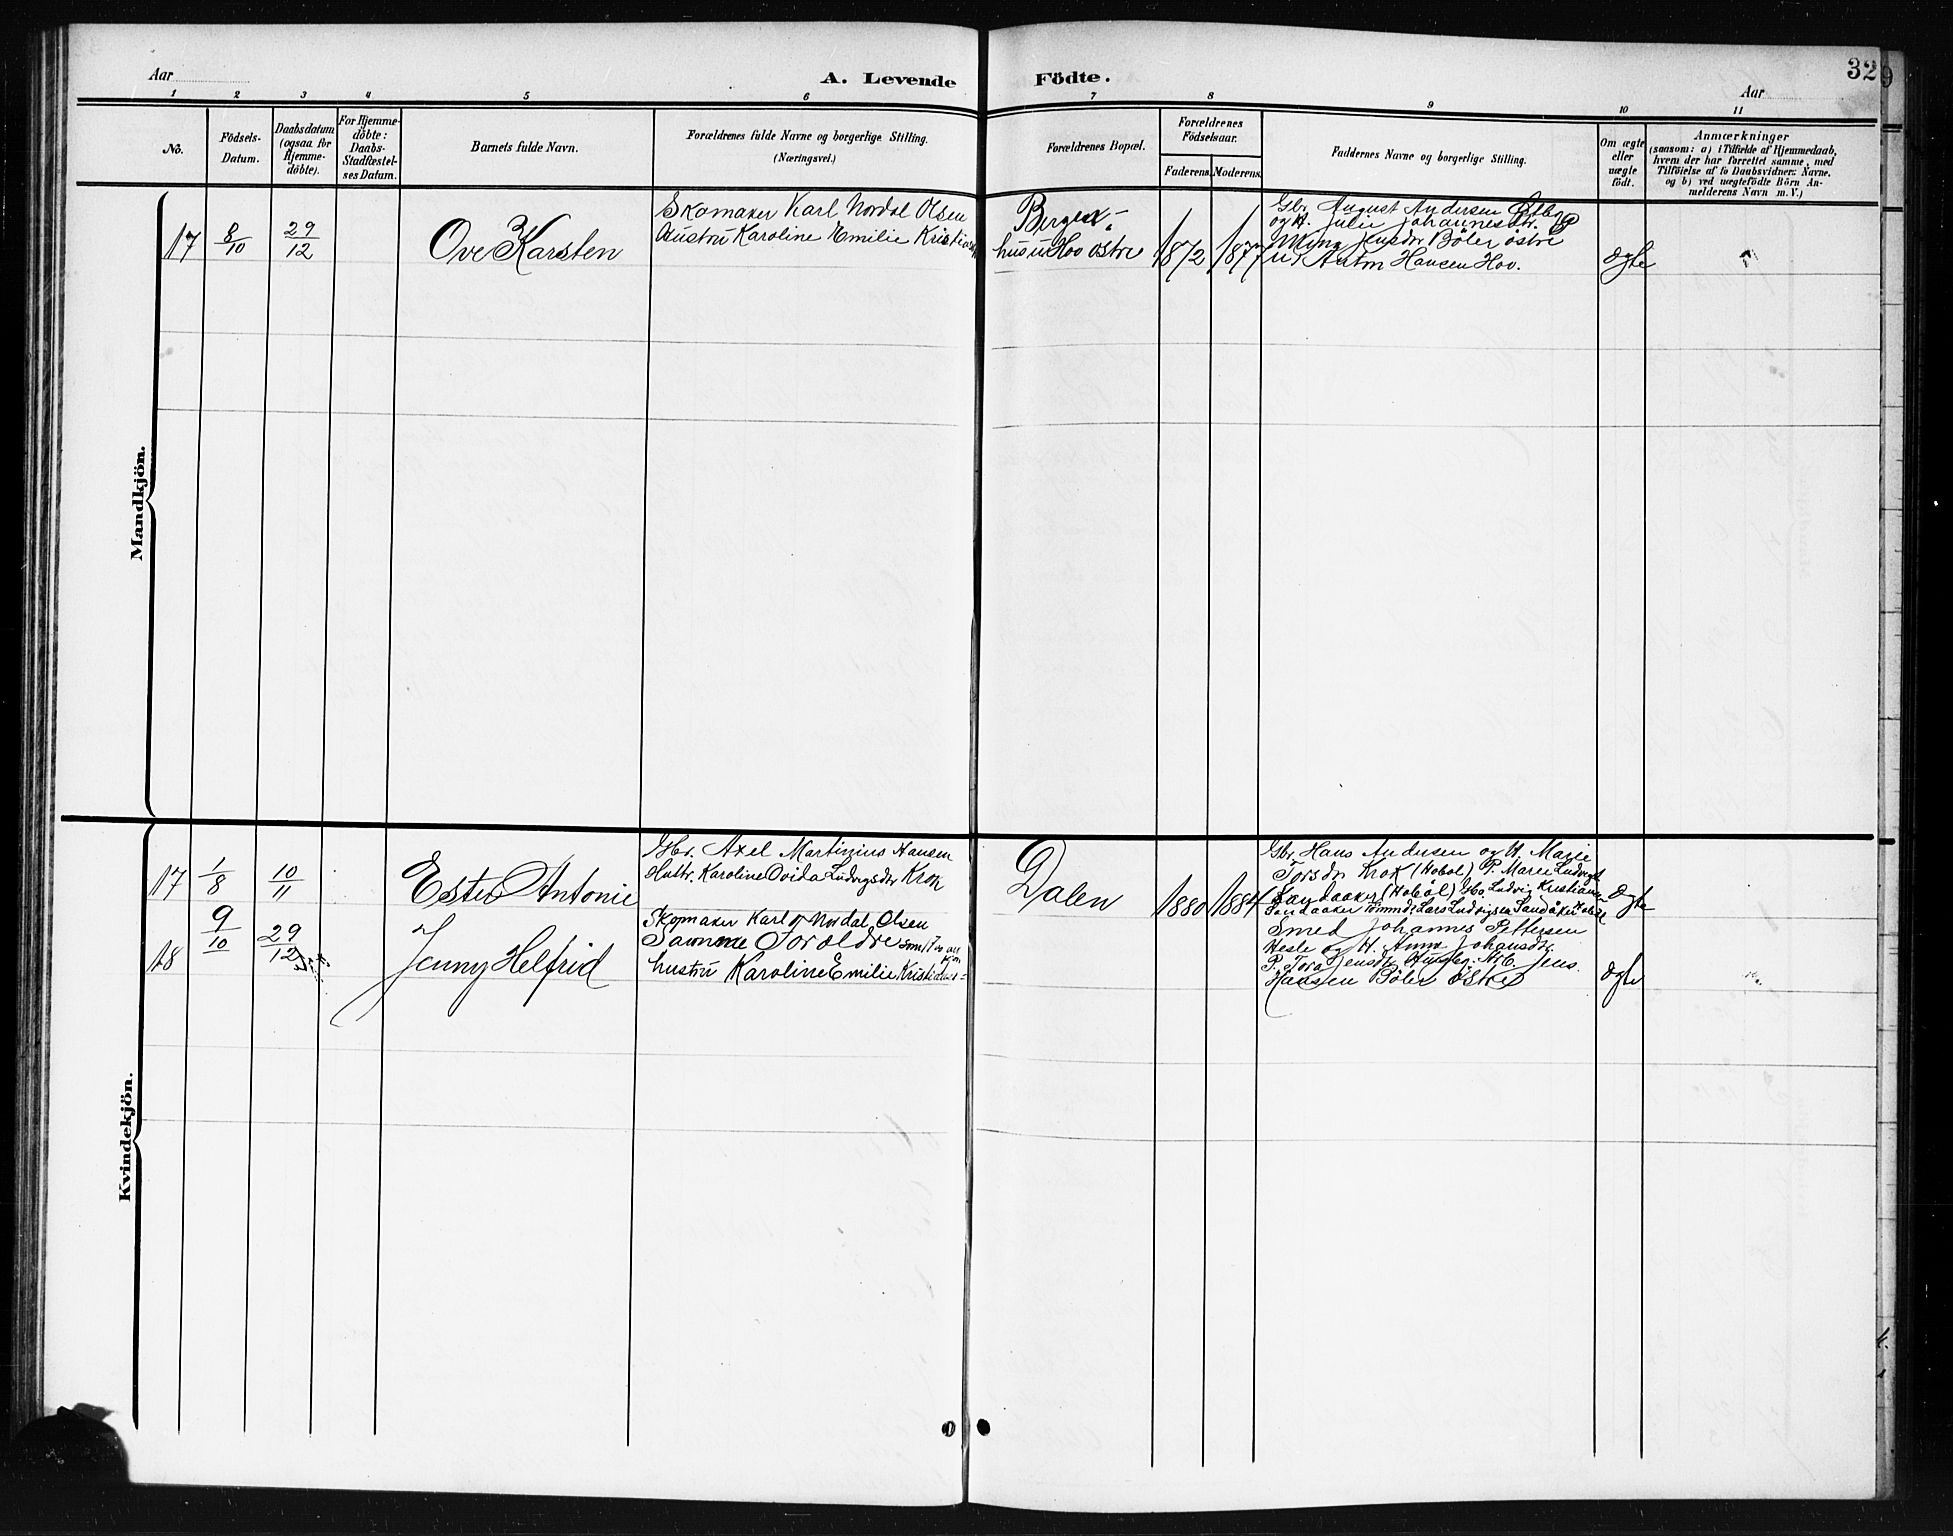 32
Aar
A. Levende Födte.
Aar
1 2 3 4 5 6 7 8 9 10 11
No.
Födsels-
Datum.
Daabsdatum
(ogsaa for
Hjemme-
döbte).
For Hjemme-
döbte:
Daabs-
Stadfæstel-
ses Datum.
Barnets fulde Navn.
Forældrenes fulde Navne og borgerlige Stilling.
(Næringsvei.)
Forældrenes Bopæl.
Forældrenes
Födselsaar.
Faderens.
Moderens.
Faddernes Navne og borgerlige Stilling.
Om ægte
eller
uægte
födt.
Anmærkninger
(saasom: a) i Tilfælde af Hjemmedaab,
hvem der har forrettet samme, med
Tilföielse af to Daabsvidners Navne,
og b) ved uægtefödte Börn An-
melderens Navn m. V.)
Mandkjön.
17
8/10
29/12
Ove Karsten
Skomaker Karl Nordal Olsen
Hustru Karoline Emilie
Bergen-
hus u Hov østre
1872
1877
Gbr. August Andersen
og H. Julie Johannesdtr.
Jensdr Bøler østre
Anton Hansen Hov.
Ægte
Kvindekjön.
17
1/8
10/11
Ester Antonie
Gbr. Axel Martinius Hansen
Hustr. Karoline Ovida Ludvigsdtr Krok
Dalen
1880
1884
Gbr. Hans Andersen og H. Marie
Torsdr Krok (Hobøl) P. Marie Ludvigs
Sandaaker (Hobøl) Ludvig Kristians
Sandaaker Lars Ludvigsen Sandåker
Ægte
18
9/10
29/12
Jenny Helfrid
Skomaker Karl Nordal Olsen
Samme Foroldre som 17
hustru Karoline Emilie
Smed Johannes Pettersen
Hesle og H. Anna Johansdtr
P. Tora Jensdtr Jens
Hansen Bøler Østre
Ægte